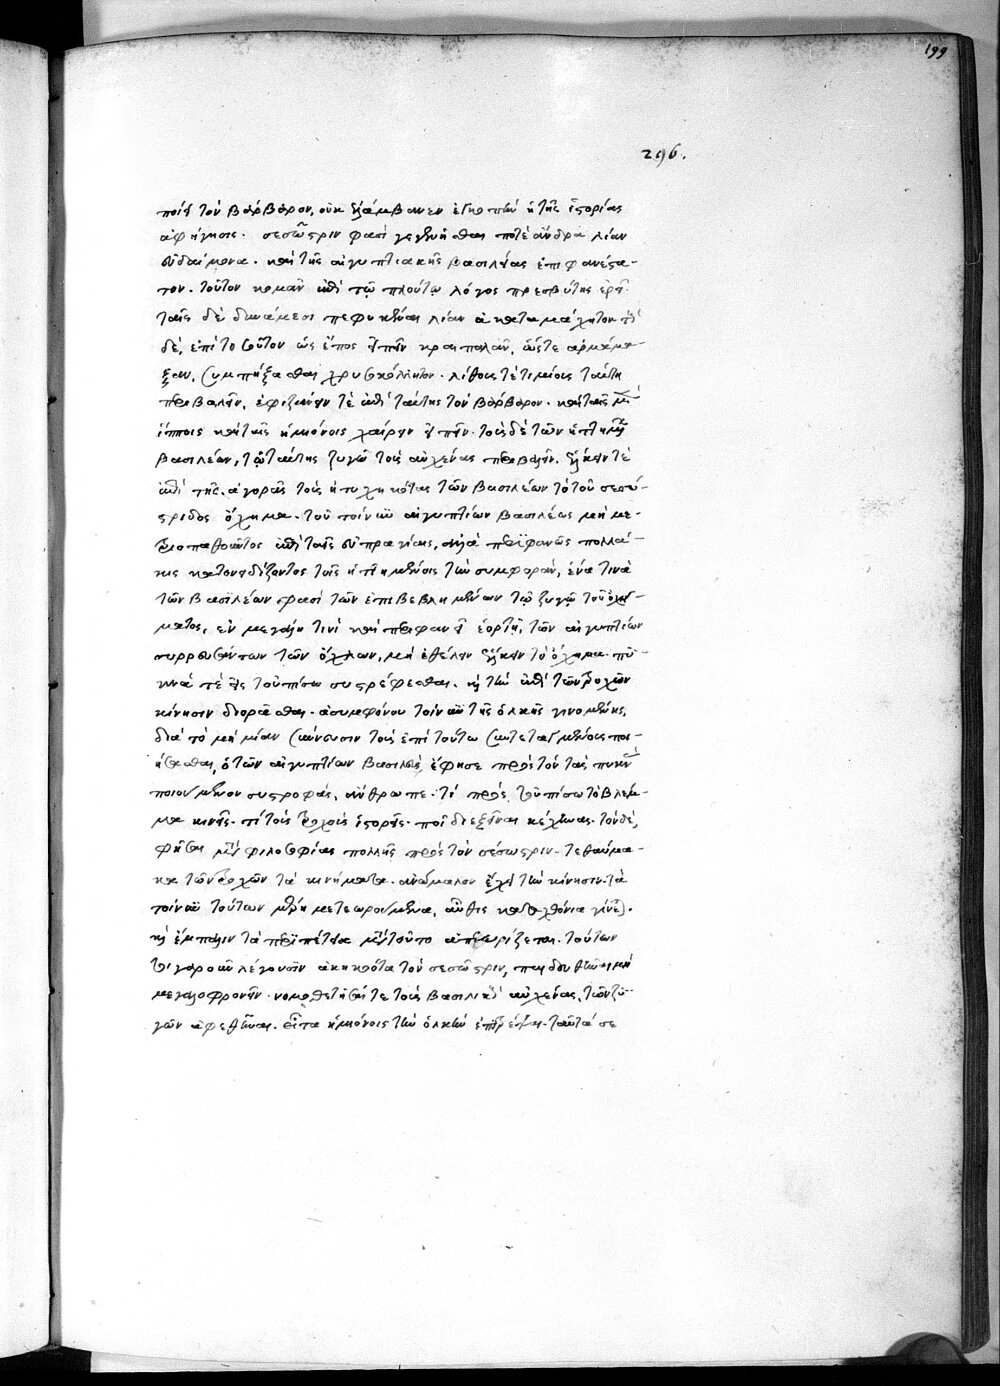 199
296.
ποιεῖ τὸν βάρβαρον, οὐκ ἐλάμβανεν ἐγκοπὴν ἡ τῆς ἱστορίας
ἀφήγησις. σέσωστριν φασὶ γεγενῆσθαι ποτὲ ἄνδρα λίαν
εὐδαίμονα. καὶ τῆς αἰγυπτιακῆς βασιλείας ἐπιφανέστα-
τον. τοῦτον κομᾶν ἐπὶ τῷ πλούτῳ λόγος πρεσβύτης ἐρεῖ.
ταῖς δὲ δυνάμεσι πεφυκέναι λίαν ἀκαταμάχητον
δὲ, ἐπὶ τοσοῦτον ὡς ἔπος εἰπεῖν κραιπαλᾶν, ὥστε ἁρμάμα-
ξαν, συμπήξασθαι χρυσοκόλλητον. λίθοις τὲ τιμίοις ταύτη
περιβαλεῖν, ἐφιζάνειν τὲ ἐπὶ ταύτης τὸν βάρβαρον. καὶ ταῖς μὲν
ἵπποις καὶ ταῖς ἡμιόνοις χαίρειν εἰπεῖν. τοὺς δὲ τῶν ἡττημένων
βασιλέων, τῷ ταύτης ζυγῷ τοὺς αὐχένας περιβαλεῖν. ἕλκειν τὲ
ἐπὶ τῆς ἀγορᾶς τοὺς ἠτυχηκότας τῶν βασιλέων τὸ τοῦ σεσώ-
στριδος ὄχημα. τοῦ τοίνυν αἰγυπτίων βασιλέως μὴ με-
τριοπαθοῦντος ἐπὶ ταῖς εὐπραγίαις, ἀλλὰ περιφανῶς πολλά-
κις κατονειδίζοντος τοῖς ἡττημένοις τὴν συμφορὰν, ἕνα τινὰ
τῶν βασιλέων φασὶ τῶν ἐπιβεβλημένων τῷ ζυγῷ τοῦ ὀχή-
ματος, ἐν μεγάλη τινὶ καὶ περιφανεῖ ἑορτῇ, τῶν αἰγυπτίων
συρρεόντων τῶν ὄχλων, μὴ ἐθέλειν ἕλκειν τὸ ὄχημα. πυ-
κνά τε εἰς τοὐπίσω συστρέφεσθαι. καὶ τὴν ἐπὶ τῶν τροχῶν
κίνησιν διορᾶσθαι. ἀσυμφώνου τοίνυν τῆς ὁλκῆς γινομένης,
διὰ τὸ μὴ μίαν σύννευσιν τοὺς ἐπὶ τούτω συντεταγμένους ποι-
εῖσθαι, ὁ τῶν αἰγυπτίων βασιλεὺς ἔφησε πρὸς τὸν τὰς πυκνὰς
ποιούμενον συστροφάς, ἄνθρωπε. τί πρὸς τοὐπίσω τὸ βλέμ-
μα κινεῖς. τί τοὺς τροχοὺς ἱστορεῖς. ποῖ διεξιέναι κέχηνας. τὸν δὲ,
φῆσαι μετὰ φιλοσοφίας πολλῆς πρὸς τὸν σέσωστριν. τεθαύμα-
κα τῶν τροχῶν τὰ κινήματα. ἀνώμαλον ἔχει τὴν κίνησιν. τὰ
τοίνυν τούτων μέρη μετεωρούμενα, αὖθις καταχθόνια γίνεται.
καὶ ἔμπαλιν τὰ περιπέτεια μετὰ τοῦτο αἰωρίζεται. τούτων
τοιγαροῦν λέγουσιν ἀκηκοότα τὸν σεσῶστριν, παιδευθῆναι μὴ
μεγαλοφρονεῖν. νομοθετῆσαί τε τοὺς βασιλικοὺς αὐχένας, τῶν ζυ-
γῶν ἀφεθῆναι. εἶτα ἡμιόνοις τὴν ὁλκὴν ἐπιτρέψαι. ταῦτά σε